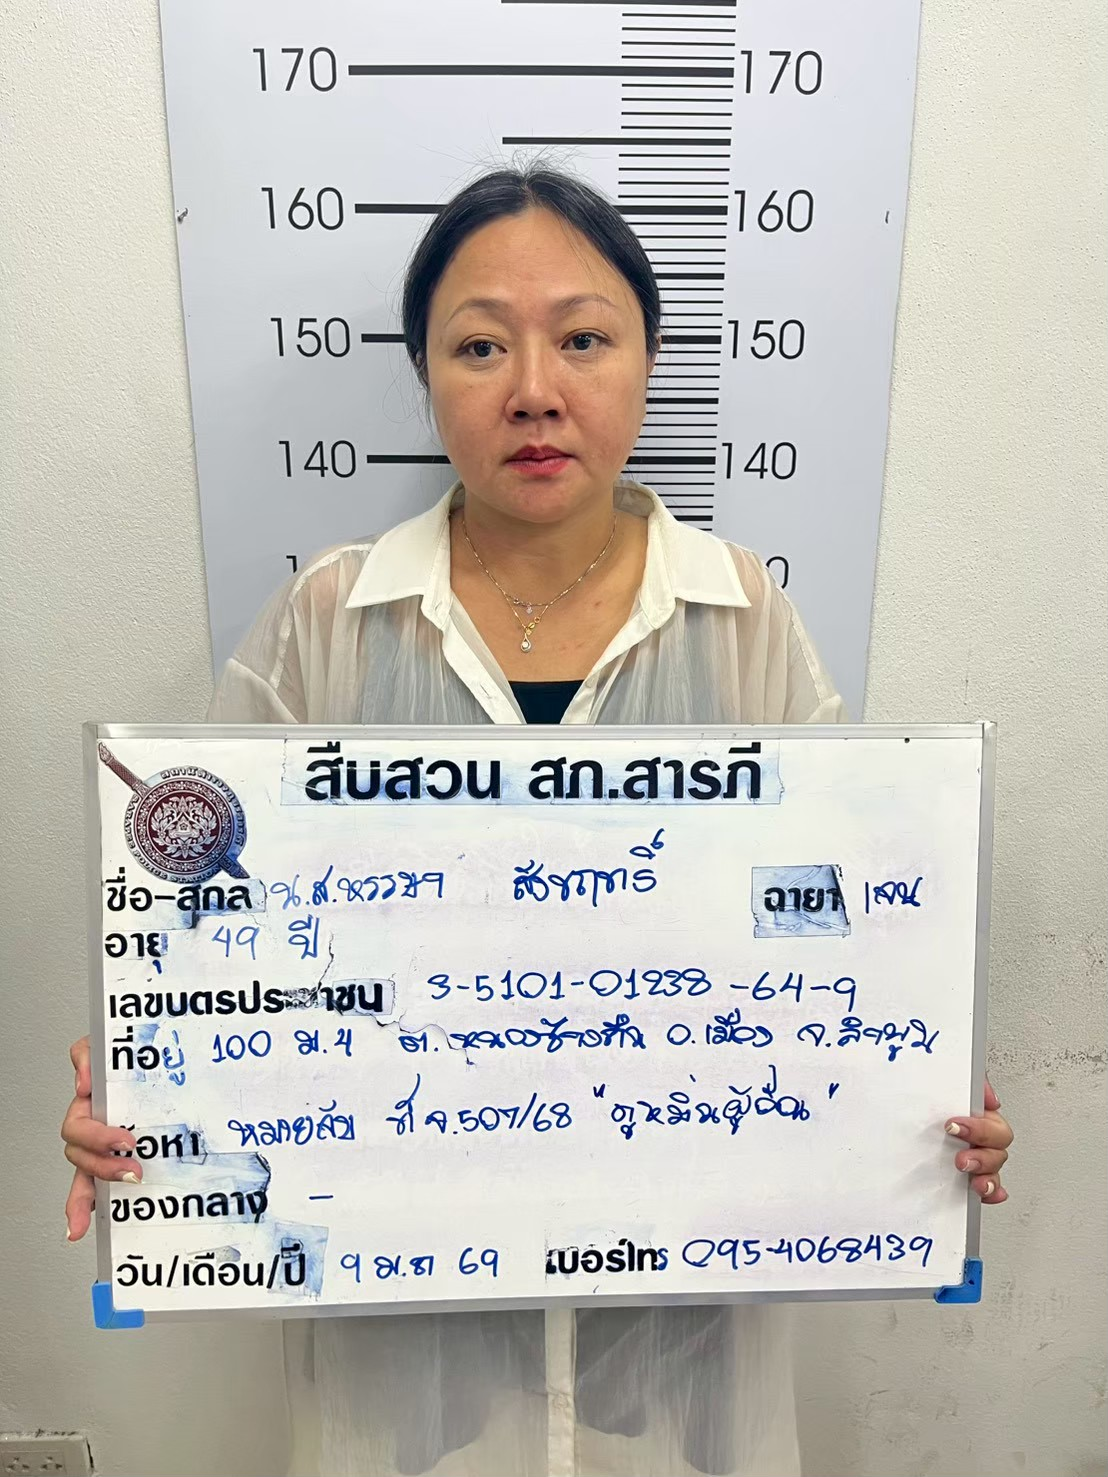 170 170
160 160
150 150
140 140
สืบสวน สภ.สารภี
ชื่อ-สกุล น.ส.หรรษา ฉายา เจน
อายุ 49 ปี
เลขบัตรประชาชน 3-5101-01238-64-9
ที่อยู่ 100 ม.4 ต.หนองช้างคืน อ.เมือง จ.ลำพูน
ข้อหา หมายจับ ที่ จ.507/68 "ดูหมิ่นผู้อื่น"
ของกลาง -
วัน/เดือน/ปี 9 ม.ค 69 เบอร์โทร 095-4068439